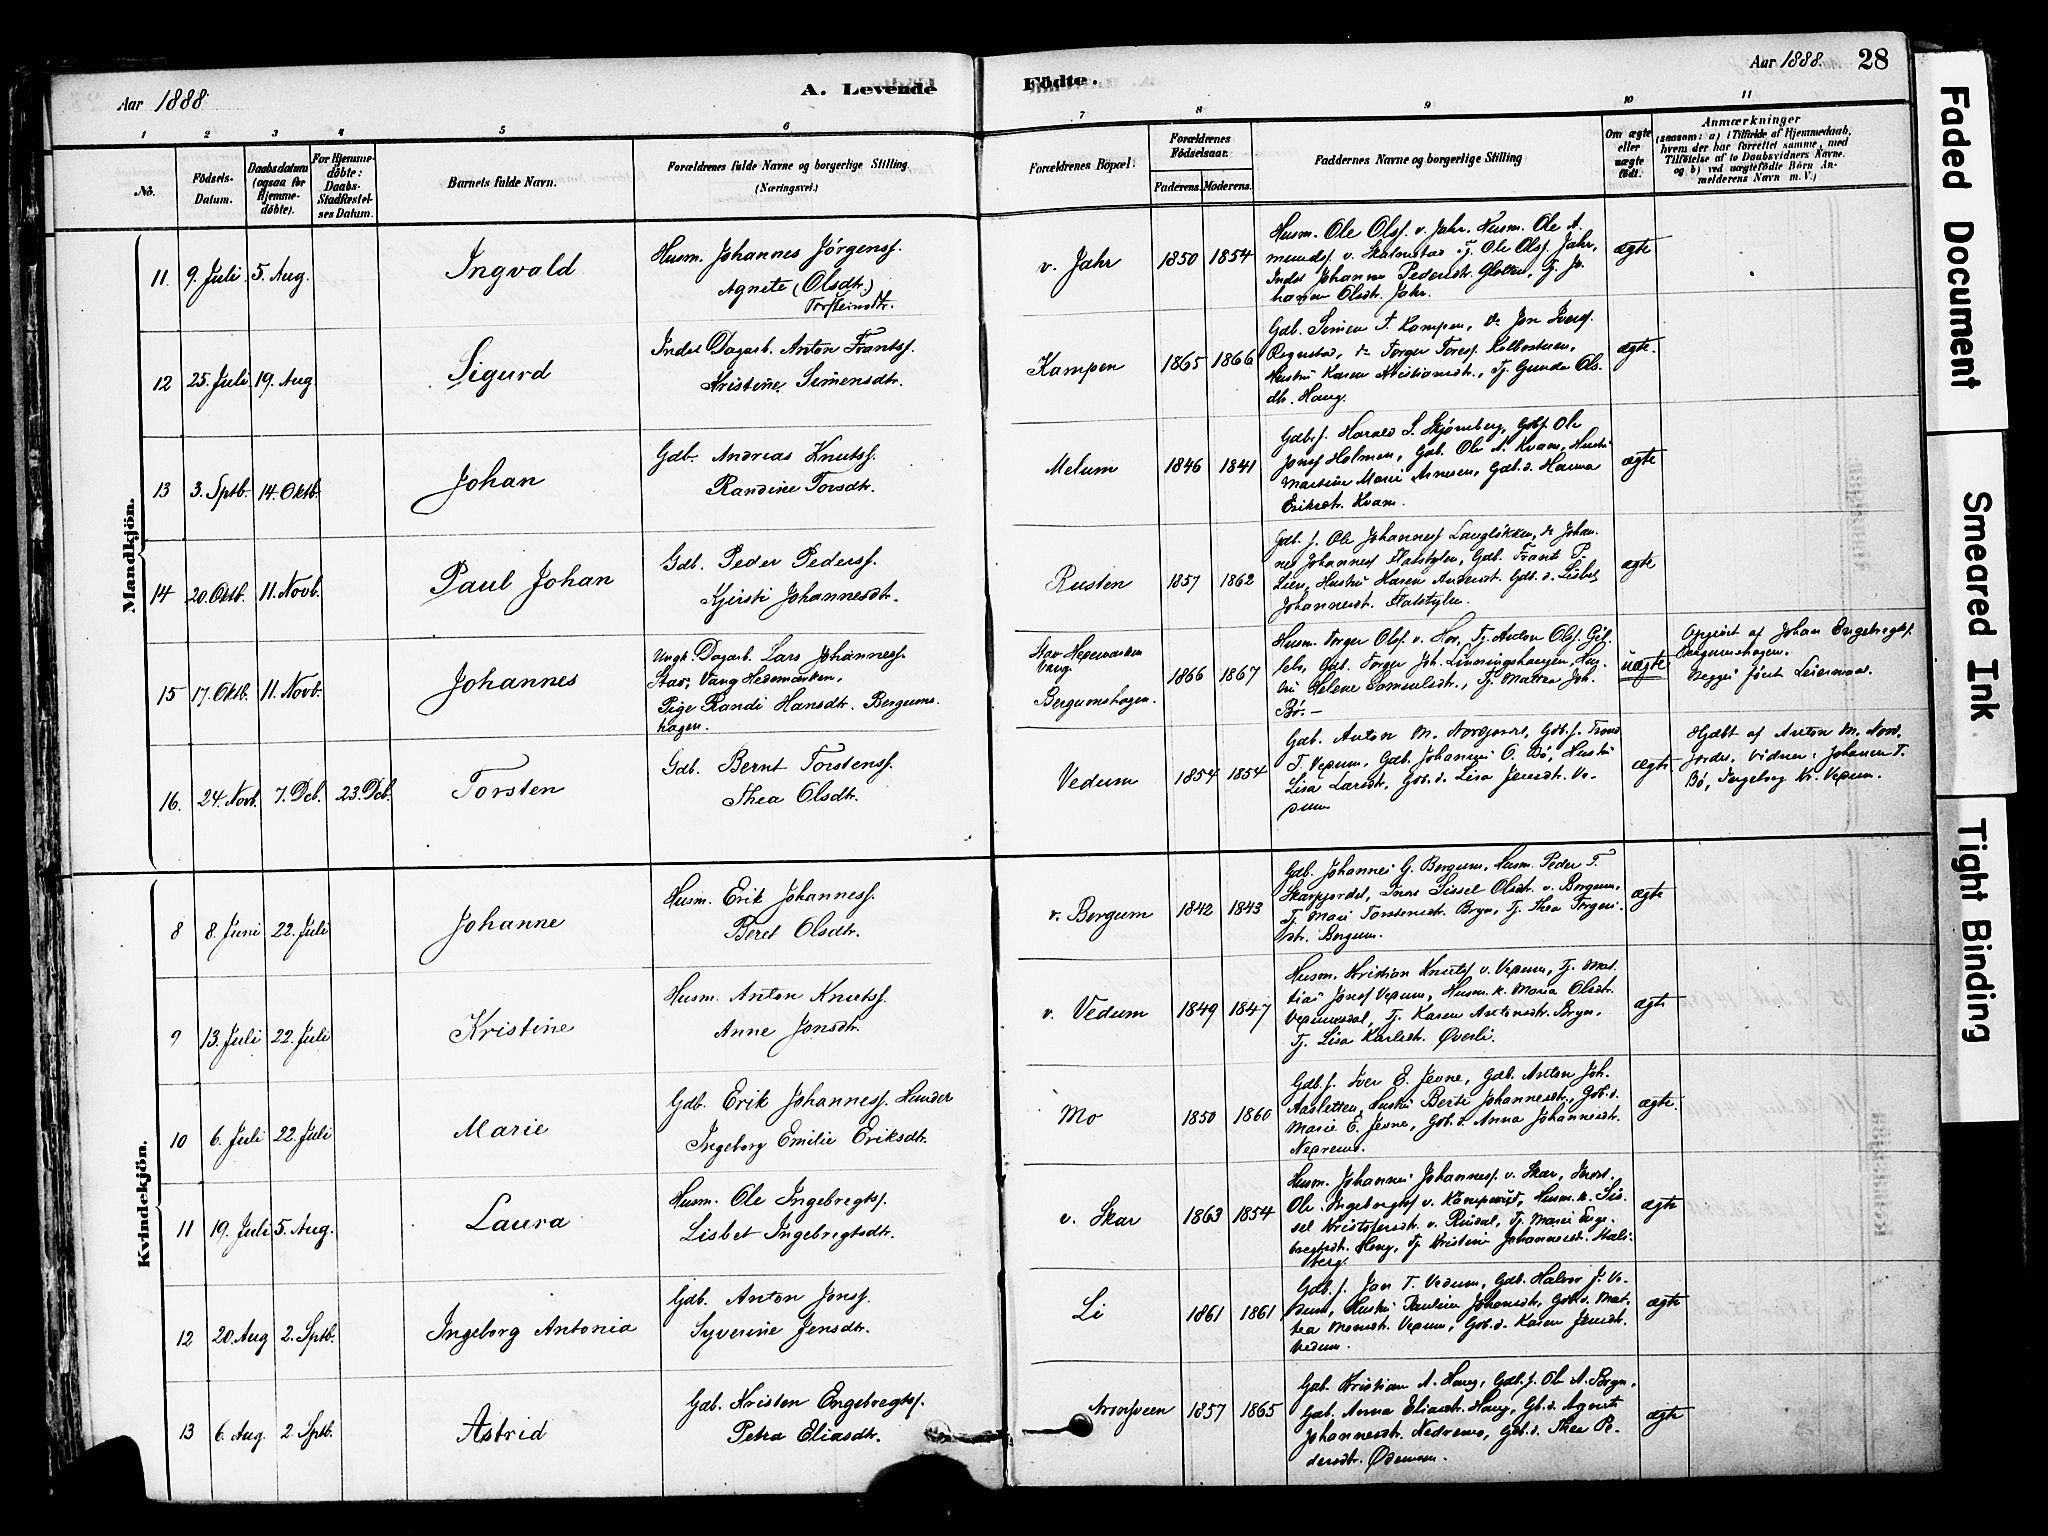 Aar 1888.
A. Levende
Födte.
Aar 1888. 28
1 2 3 4 5 6 7 8 9 10 11
No.
Födsels-Datum.
Daabsdatum (ogsaa for Hjemme-döbte).
For Hjemme-döbte: Daabs-Stadfæstel-ses Datum.
Barnets fulde Navn.
Forældrenes fulde Navne og borgerlige Stilling
(Næringsvei.)
Forældrenes Böpæl.
Forældrenes Födselsaar.
Faderens. Moderens.
Faddernes Navne og borgerlige Stilling
Om ægte eller uægte födt.
Anmærkninger
(saasom: a) i Tilfælde af Hjemmedaab, hvem der har forrettet samme, med Tilföielse af to Daabsvidners Navne. og b) ved uægtefödte Börn An-melderens Navn m. V.)
Mandkjön.
11. 9. Juli 5. Aug. Ingvald
Husm. Johannes Jörgenss.
Agnete (Olsdtr.)
Torsteinsdtr.
v. Jahr 1850 1854
Husm. Ole Olss. v. Jahr, Husm. Ole A.
Ole Olss. Jahr,
Inds. Johanne Pedersdtr.
Olsdtr. Jahr.
ægte
12 25. Juli 19. Aug Sigurd
Inds. Dagarb. Anton Frantss.
Kristine Simensdtr.
Kampen 1865 1866
Gdb. Simen T. Kampen, do Jon Iverss.
do Torger Toress.
Hustru Karen Kristiansdtr., Tj. Gunda Ols-
dtr. Haug.
ægte.
13 3. Sptb. 14. Oktb. Johan
Gdb. Andreas Knutss.
Randine Torsdtr.
Melum 1846 1841
Gdb.s. Harald S. Skjönsberg, Gdb.s. Ole
Jonss. Holmen, Gdb. Ole A. Kvam, Hustru
Martine Marie Arnesen, Gdb.d. Hanna
Eriksdtr. Kvam.
ægte
14 20. Oktb. 11. Novb. Paul Johan
Gdb. Peder Pederss.
Kjersti Johannesdtr.
Rusten 1857 1862
Gdb. s. Ole Johanness. Langlökken, do Johan-
nes Johanness. Gdb. Frants P.
Lien, Hustru Karen Andersdtr. Gdb. d. Lisbet
Johannesdtr.
ægte
15 17. Oktb. 11. Novb. Johannes
Ungk. Dagarb. Lars Johanness.
Stav, Vang Hedemarken,
Pige Randi Hansdtr. Bergums-
hagen.
Stav Hedemarken
Vang
Bergumshagen.
1866 1867
Husm. Torger Olss. v. Hov, Tj. Anton Olss.
Gdb. Torger Joh. Hus-
tru Helene Samuelsdtr., Tj. Mattea Joh.
Bö. —
uægte
Opgivet af Johan Engebregts.
Bergumshagen.
Begges först Leiermaal.
16. 24. Novb. 7. Dcb. 23. Dcb. Torsten
Gdb. Bernt Torstenss.
Thea Olsdtr.
Vedum 1854 1854
Gdb. Anton M. Nordjordet, Gdb.s. Trond
T. Vedum, Gdb. Johannes O. Bö, Hustru
Lisa Larsdtr, Gdb. d. Lisa Jensdtr. Ve-
dum
ægte
Hjdbt af Anton M. Nord-
jordet. Vidner: Johannes T.
Bö, Ingeborg Kr. Vedum.
Kvindekjön.
8 8. Juni 22. Juli Johanne
Husm. Erik Johanness.
Beret Olsdtr.
v. Bergum 1842 1843
Gdb. Johannes G. Bergum, Husm. Peder T.
Inds. Sissel Olsdtr. v. Bergum,
Tj. Mari Torstensdtr. Bryn, Tj. Thea Torgers-
dtr. Bergum.
ægte
9 13. Juli 22. Juli Kristine
Husm. Anton Knutss.
Anne Jonsdtr.
v. Vedum 1849 1847
Husm. Kristian Knutss v. Vedum, Tj. Mat-
tias Jonss Vedum, Husm. k. Maria Olsdtr.
Vedumsdal, Tj. Karen Antonsdtr. Bryn,
Tj. Lisa Karlsdtr. Överli.
ægte
10 6. Juli 22. Juli Marie
Gdb. Erik Johanness. Hunder
Ingeborg Emilie Eriksdtr.
Mo 1850 1860
Gdb.s. Iver E. Jevne, Gdb. Anton Joh.
Aasletten, Hustru Berte Johannesdtr., Gdb. d.
Marie E. Jevne, Gdb. d. Anna Johannesdtr.
Nedremo.
ægte.
11 19. Juli 5. Aug. Laura
Husm. Ole Ingebregtss.
Lisbet Ingebregtsdtr.
v. Skar 1863 1854
Husm. Johannes Johanness. v. Skar, Inds.
Ole Ingebregtss v. Husm. k. Sis-
sel Kristofersdtr. v. Rindal, Tj. Marie Enge-
bregtsdtr. Haug, Tj Kristine Johannesdtr. Stals-
berg.
ægte
12 20. Aug 2. Sptb. Ingeborg Antonia
Gdb. Anton Jonss.
Syverine Jensdtr.
Li 1861 1861
Gdb. s. Jon T. Vedum, Gdb. Halvor J. Ve-
dum, Hustru Pauline Johansdtr, Gdb. d. Mat-
tea Monsdtr. Vedum, Gdb. d. Karen Jensdtr.
Vedum.
ægte
13 6. Aug. 2. Sptb. Astrid
Gdb. Kristen Engebregtss.
Petra Eliasdtr.
1857 1865
Gdb. Kristian A. Haug, Gdb. s. Ole A. Bryn,
Gdb. Anna Eliasdtr. Haug, Gb. d. Agnete
Johannesdtr. Nedremo, Gdb. d. Thea Pe-
dersdtr. Ödemoen.
ægte
Faded Document
Smeared Ink
Tight Binding